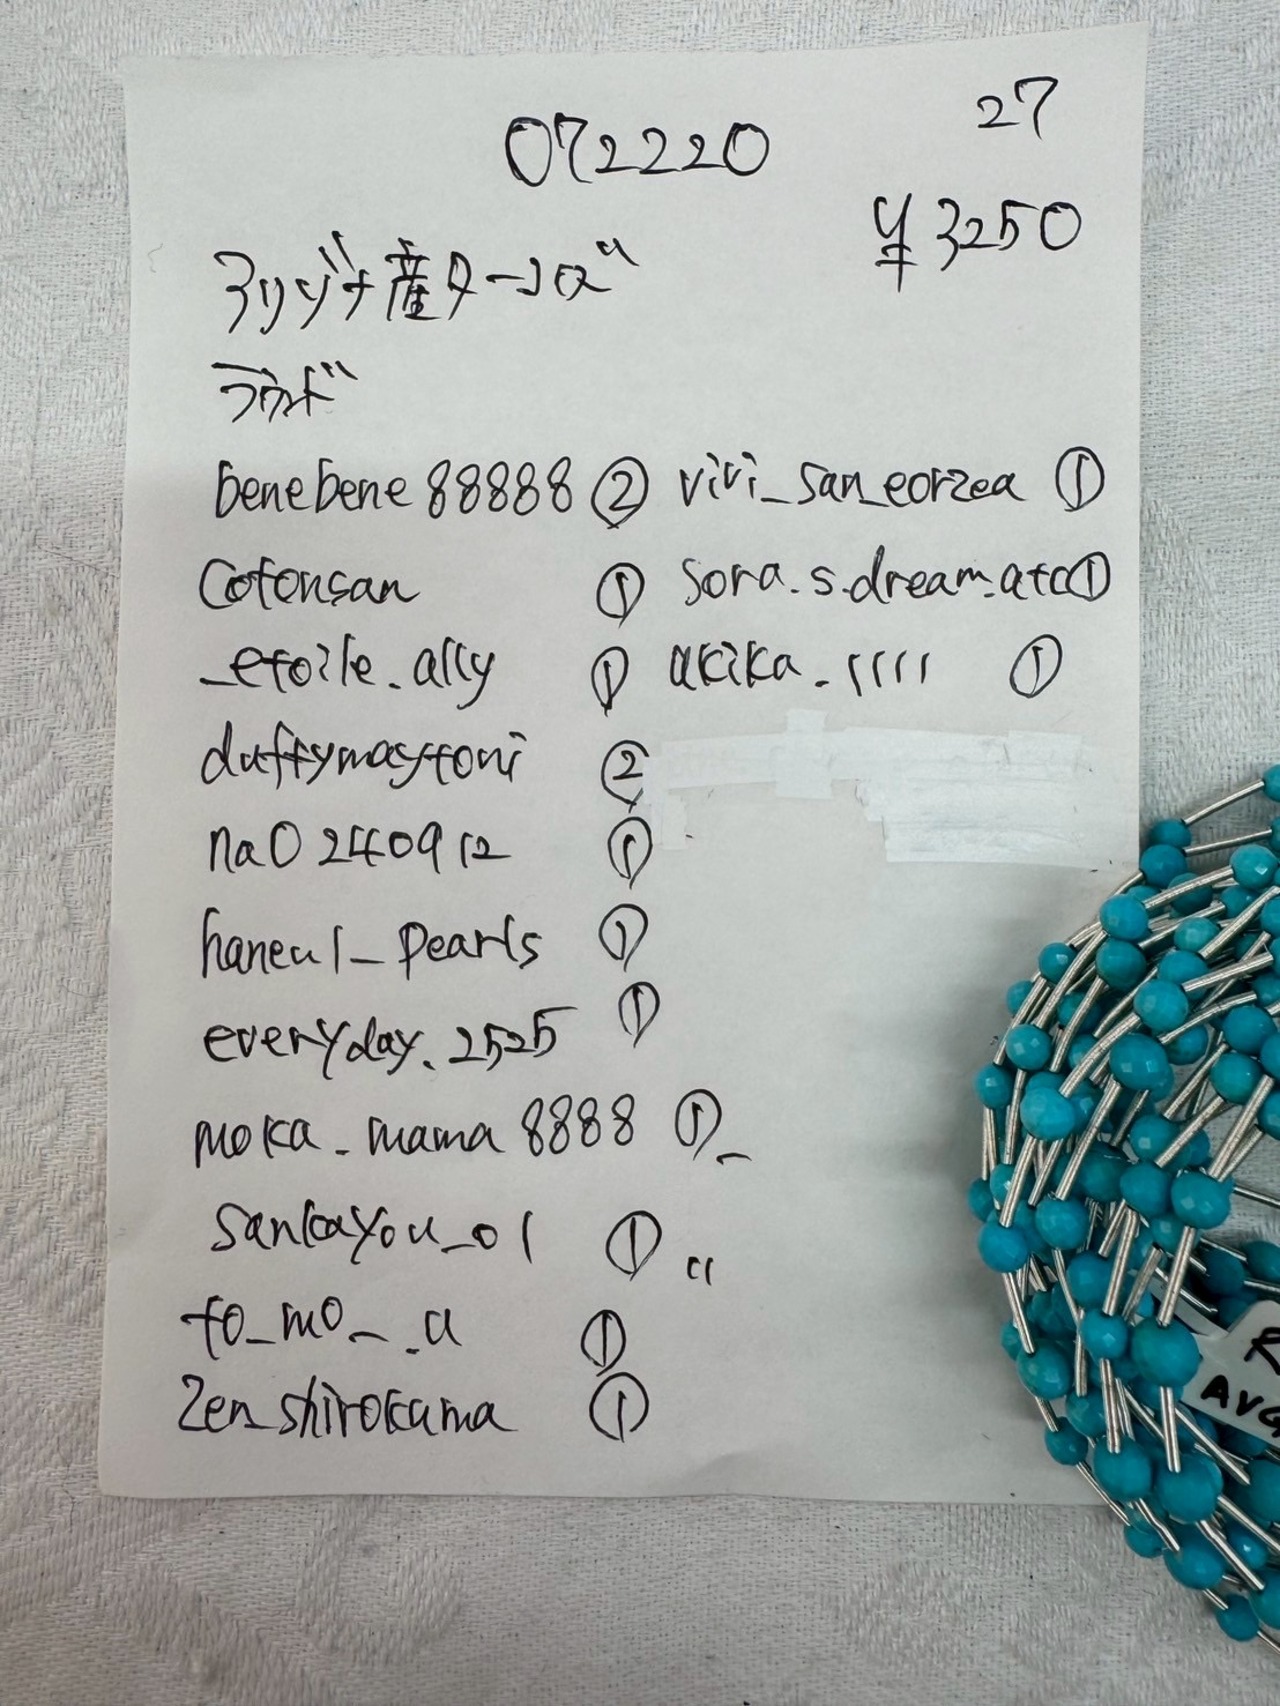 072220
27
¥3250
アリゾナ産ターコイズ
ラウンド
benebene88888 ②
cotonsan ①
_etoile.ally ①
duffymaytoni ②
na0240912 ①
haneul_pearls ①
everyday.2525 ①
moka_mama8888 ①_
sankayou_01 ① "
to_mo_.a ①
zen_shirokuma ①
vivi_san_eorzea ①
sora.s.dream.atc①
akika.1111 ①